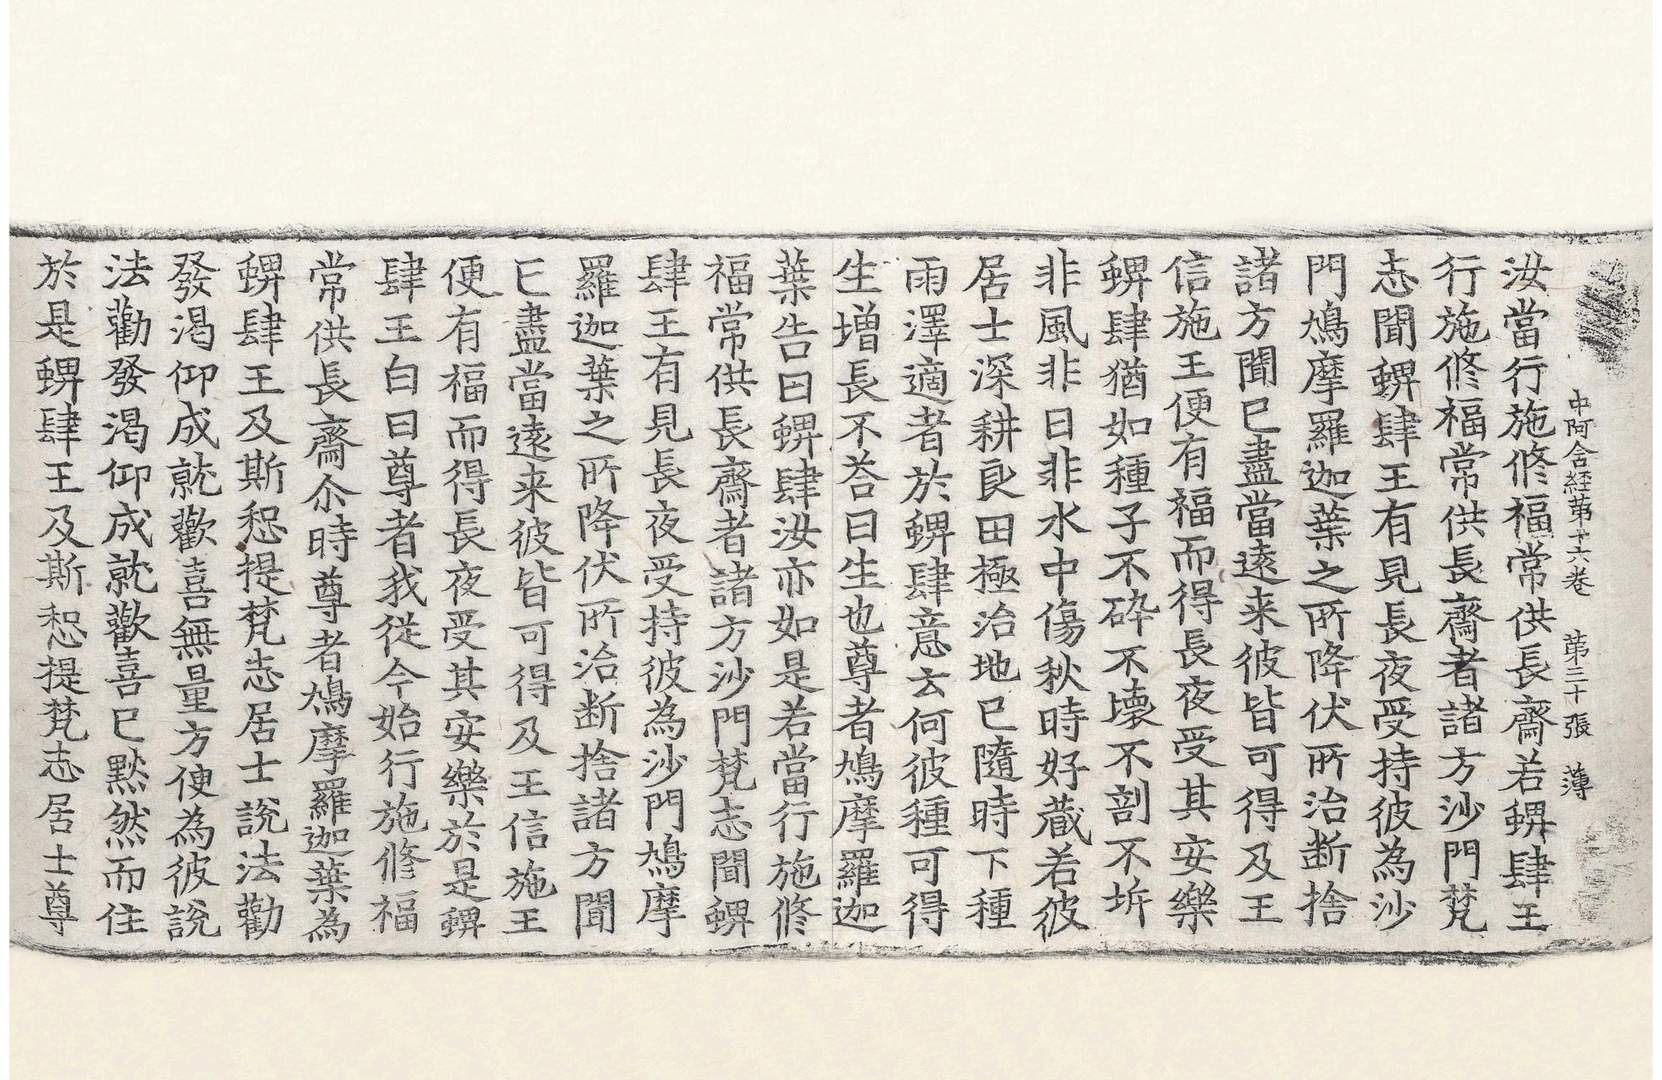 中阿含経苐十六卷 苐三十張 薄
汝當行施修福常供長齋若蜱肆王
行施修福常供長齋者諸方沙門梵
志聞蜱肆王有見長夜受持彼為沙
門鳩摩羅迦葉之所降伏所治断捨
諸方聞已盡當遠来彼皆可得及王
信施王便有福而得長夜受其安樂
蜱肆猶如種子不碎不壞不剖不坼
非風非日非水中傷秋時好蔵若彼
居士深耕良田極治地已隨時下種
雨澤適者於蜱肆意云何彼種可得
生增長不荅曰生也尊者鳩摩羅迦
葉告曰蜱肆汝亦如是若當行施修
福常供長齋者諸方沙門梵志聞蜱
肆王有見長夜受持彼為沙門鳩摩
羅迦葉之所降伏所治断捨諸方聞
已盡當遠来彼皆可得及王信施王
便有福而得長夜受其安樂於是蜱
肆王白曰尊者我從今始行施修福
常供長齋尒時尊者鳩摩羅迦葉為
蜱肆王及斯惒提梵志居士說法勸
發渴仰成就歡喜無量方便為彼說
法勸發渴仰成就歡喜已默然而住
於是蜱肆王及斯惒提梵志居士尊